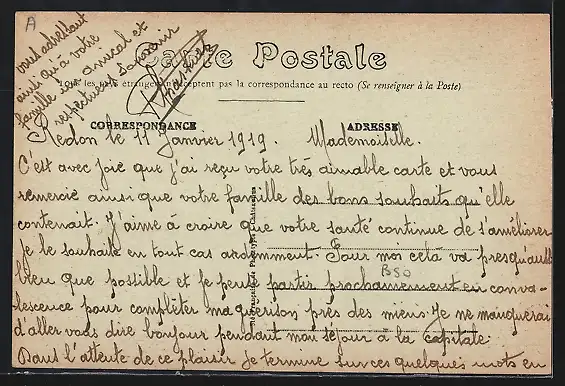 A
Carte Postale
Tous les pays étrangers n'acceptent pas la correspondance au recto (Se renseigner à la Poste)
CORRESPONDANCE
ADRESSE
Redon le 11 Janvier 1919. Mademoiselle.
C'est avec joie que j'ai reçu votre très aimable carte et vous
remercie ainsi que votre famille des bons souhaits qu'elle
contenait. J'aime à croire que votre santé continue de s'améliorer
je le souhaite en tout cas ardemment. Pour moi cela va presqu'aussi
bien que possible et je peux partir prochainement en conva-
BSO
lescence pour compléter ma guérison près des miens. Je ne manquerai
d'aller vous dire bonjour pendant mon séjour à la capitale.
Dans l'attente de ce plaisir je termine sur ces quelques mots en
vous adressant
ainsi qu'à votre
famille son amical et
respectueux souvenir